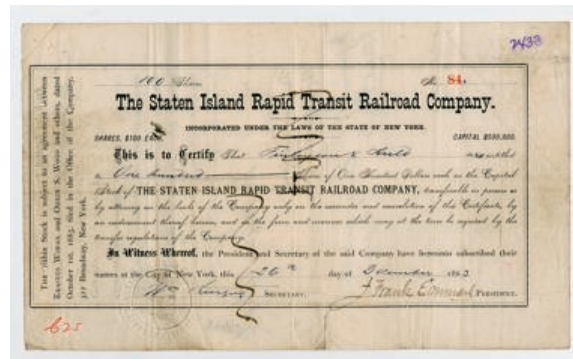 2433
100 Shares
No 84.
The Staten Island Rapid Transit Railroad Company.
INCORPORATED UNDER THE LAWS OF THE STATE OF NEW YORK.
SHARES, $100 EACH. CAPITAL $500,000.
This is to Certify That entitled
to One hundred Shares of One Hundred Dollars each in the Capital
Stock of THE STATEN ISLAND RAPID TRANSIT RAILROAD COMPANY, transferable in person or
by attorney on the books of the Company only on the surrender and cancellation of this Certificate, by
an instrument thereof hereon, and in the form and manner which may at the time be required by the
transfer regulations of the Company.
In Witness Whereof, the President and Secretary of the said Company have hereunto subscribed their
names at the City of New York, this 26th day of December 1883
SECRETARY. J Frank Emmons PRESIDENT.
The within Stock is subject to an agreement between
Erastus Wiman and others, dated
October 1st, 1883, filed in the Office of the Company,
Broadway, New York.
625